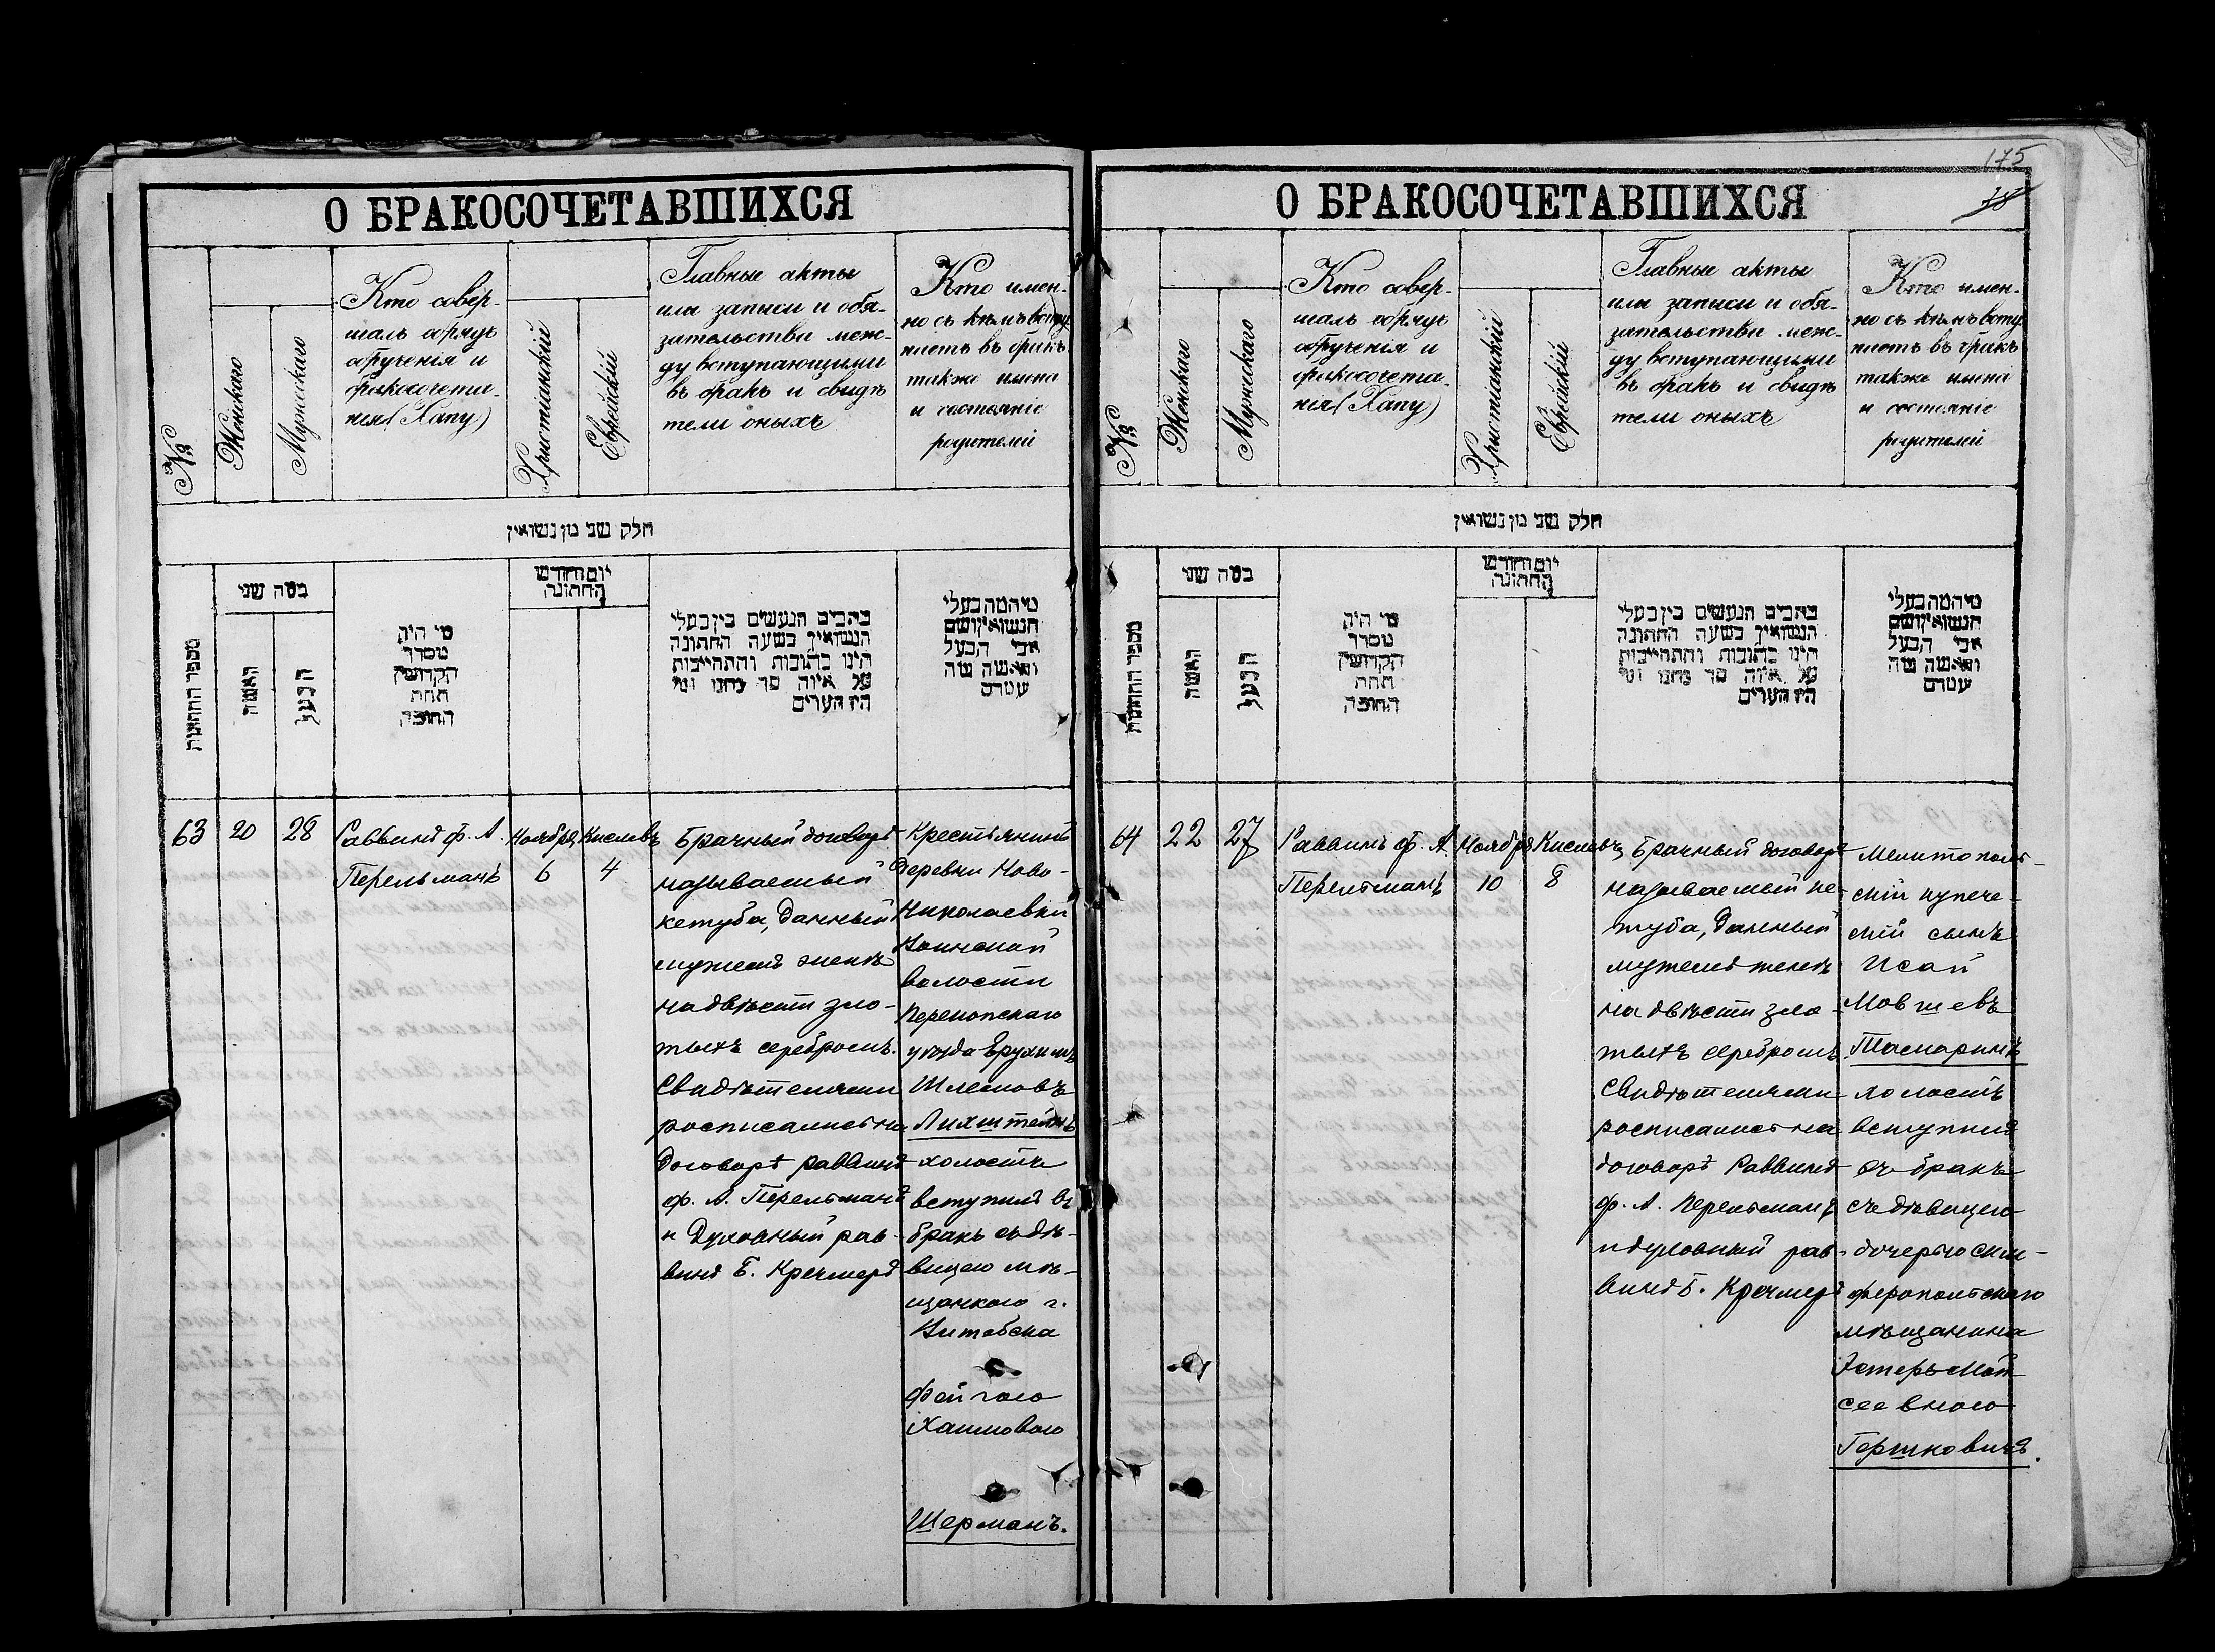 О БРАКОСОЧЕТАВШИХСЯ
№
Женскаго
Мужескаго
Кто совер-
шалъ обрядъ
обрученія и
бракосочета-
нія (Хапу)
Христіанскій
Еврейскій
Главные акты
или записи и обя-
зательства меж-
ду вступающими
въ бракъ и свидѣ
тели оныхъ
Кто имен-
но съ кѣмъ всту
паетъ въ бракъ
также имена
и состояніе
родителей
חלק שני מן נשואין
מספר החתונות
כמה שני
האשה
הבעל
מי היה
מסדר
הקדושין
תחת
החופה
יום וחודש
החתונה
כתבים הנעשים בין בעלי
הנשואין בשעה החתונה
היינו כתובות והתחייבות
על איזה סך נתנו ומי
היו העדים
מי המה בעלי
הנשואין ושם
אבי הבעל
והאשה מה
63
20
28
Раввинъ ф. А.
Перельманъ
Ноября
6
Кислевъ
4
Брачный договоръ
называемый
кетуба, данный
мужемъ женѣ
на двѣсти зло-
тыхъ серебромъ.
Свидѣтелями
росписались на
договорѣ раввинъ
ф. А. Перельманъ
и Духовный рав-
винъ Б. Кречмеръ
Крестьянинъ
деревни Ново-
Николаевки
волости
Перекопскаго
уѣзда Ерухимъ
Шлемовъ
Лихштейнъ
холостъ
вступилъ въ
бракъ съ дѣ-
вицею мѣ-
щанкою г.
Витебска
Фейгою
Хаимовою
Шерманъ.
175
78
О БРАКОСОЧЕТАВШИХСЯ
№
Женскаго
Мужескаго
Кто совер-
шалъ обрядъ
обрученія и
бракосочета-
нія (Хапу)
Христіанскій
Еврейскій
Главные акты
или записи и обя-
зательства меж-
ду вступающими
въ бракъ и свидѣ
тели оныхъ
Кто имен-
но съ кѣмъ всту
паетъ въ бракъ
также имена
и состояніе
родителей
חלק שני מן נשואין
מספר החתונות
כמה שני
האשה
הבעל
מי היה
מסדר
הקדושין
תחת
החופה
יום וחודש
החתונה
כתבים הנעשים בין בעלי
הנשואין בשעה החתונה
היינו כתובות והתחייבות
על איזה סך נתנו ומי
היו העדים
מי המה בעלי
הנשואין ושם
אבי הבעל
והאשה מה
64
22
27
Раввинъ ф. А.
Перельманъ
Ноября
10
Кислевъ
8
Брачный договоръ
называемый ке-
туба, данный
мужемъ женѣ
на двѣсти зло-
тыхъ серебромъ
Свидѣтелями
росписались на
договорѣ Раввинъ
ф. А. Перельманъ
и духовный рав-
винъ Б. Кречмеръ
Мелитополь-
скій купече-
скій сынъ
Исай
Мовшевъ
Тамаринъ
холостъ
вступилъ
въ бракъ
съ дѣвицею
дочерью сим-
феропольскаго
мѣщанина
Эстеръ Мой-
сеевною
Гершковичъ.